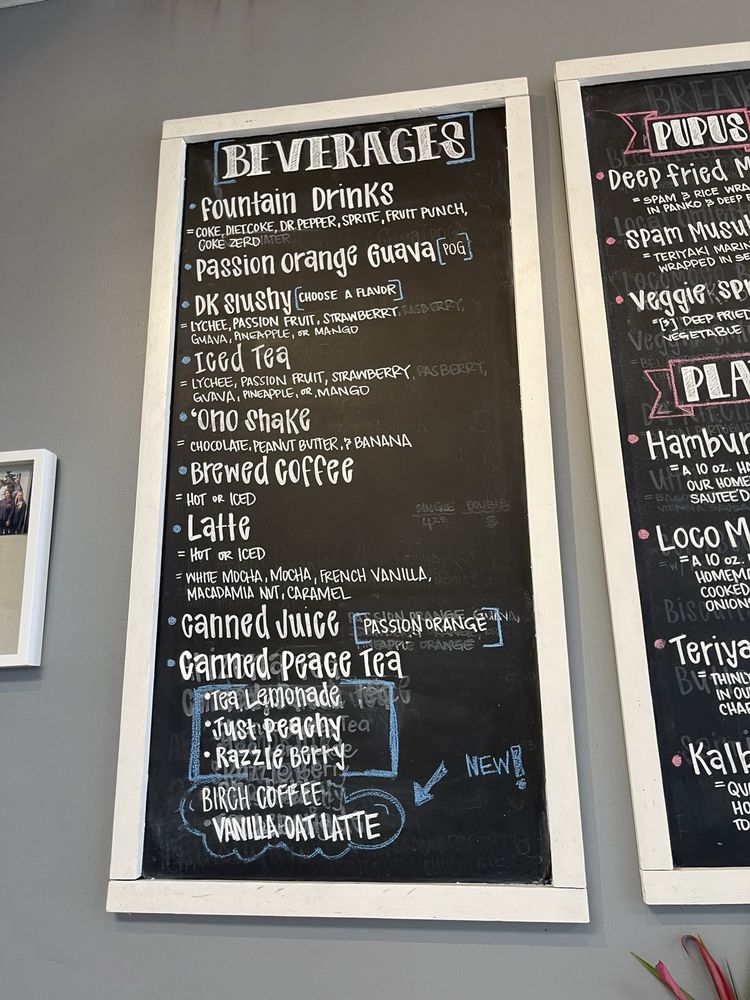 BEVERAGES
• Fountain Drinks
= COKE, DIET COKE, DR. PEPPER, SPRITE, FRUIT PUNCH,
COKE ZERO
• Passion Orange Guava [POG]
• DK Slushy [CHOOSE A FLAVOR]
= LYCHEE, PASSION FRUIT, STRAWBERRY,
GUAVA, PINEAPPLE, OR MANGO
• Iced Tea
= LYCHEE, PASSION FRUIT, STRAWBERRY,
GUAVA, PINEAPPLE, OR MANGO
• 'ONO Shake
= CHOCOLATE, PEANUT BUTTER, & BANANA
• Brewed Coffee
= HOT OR ICED
SINGLE DOUBLE
• Latte
= HOT OR ICED
= WHITE MOCHA, MOCHA, FRENCH VANILLA,
MACADAMIA NUT, CARAMEL
• Canned Juice [PASSION ORANGE]
• Canned Peace Tea
• Tea Lemonade
• Just Peachy
• Razzle Berry
NEW!
BIRCH COFFEE
VANILLA OAT LATTE
PUPUS
• Deep Fried
= SPAM & RICE
IN PANKO & DEEP
• Spam
= TERIYAKI
WRAPPED IN
• Veggie
= [3] DEEP FRIED
VEGETABLE
• 
= A 10 OZ.
OUR
SAUTEE'D
• Loco
= A 10 OZ.
COOKED
• 
IN OUR
•